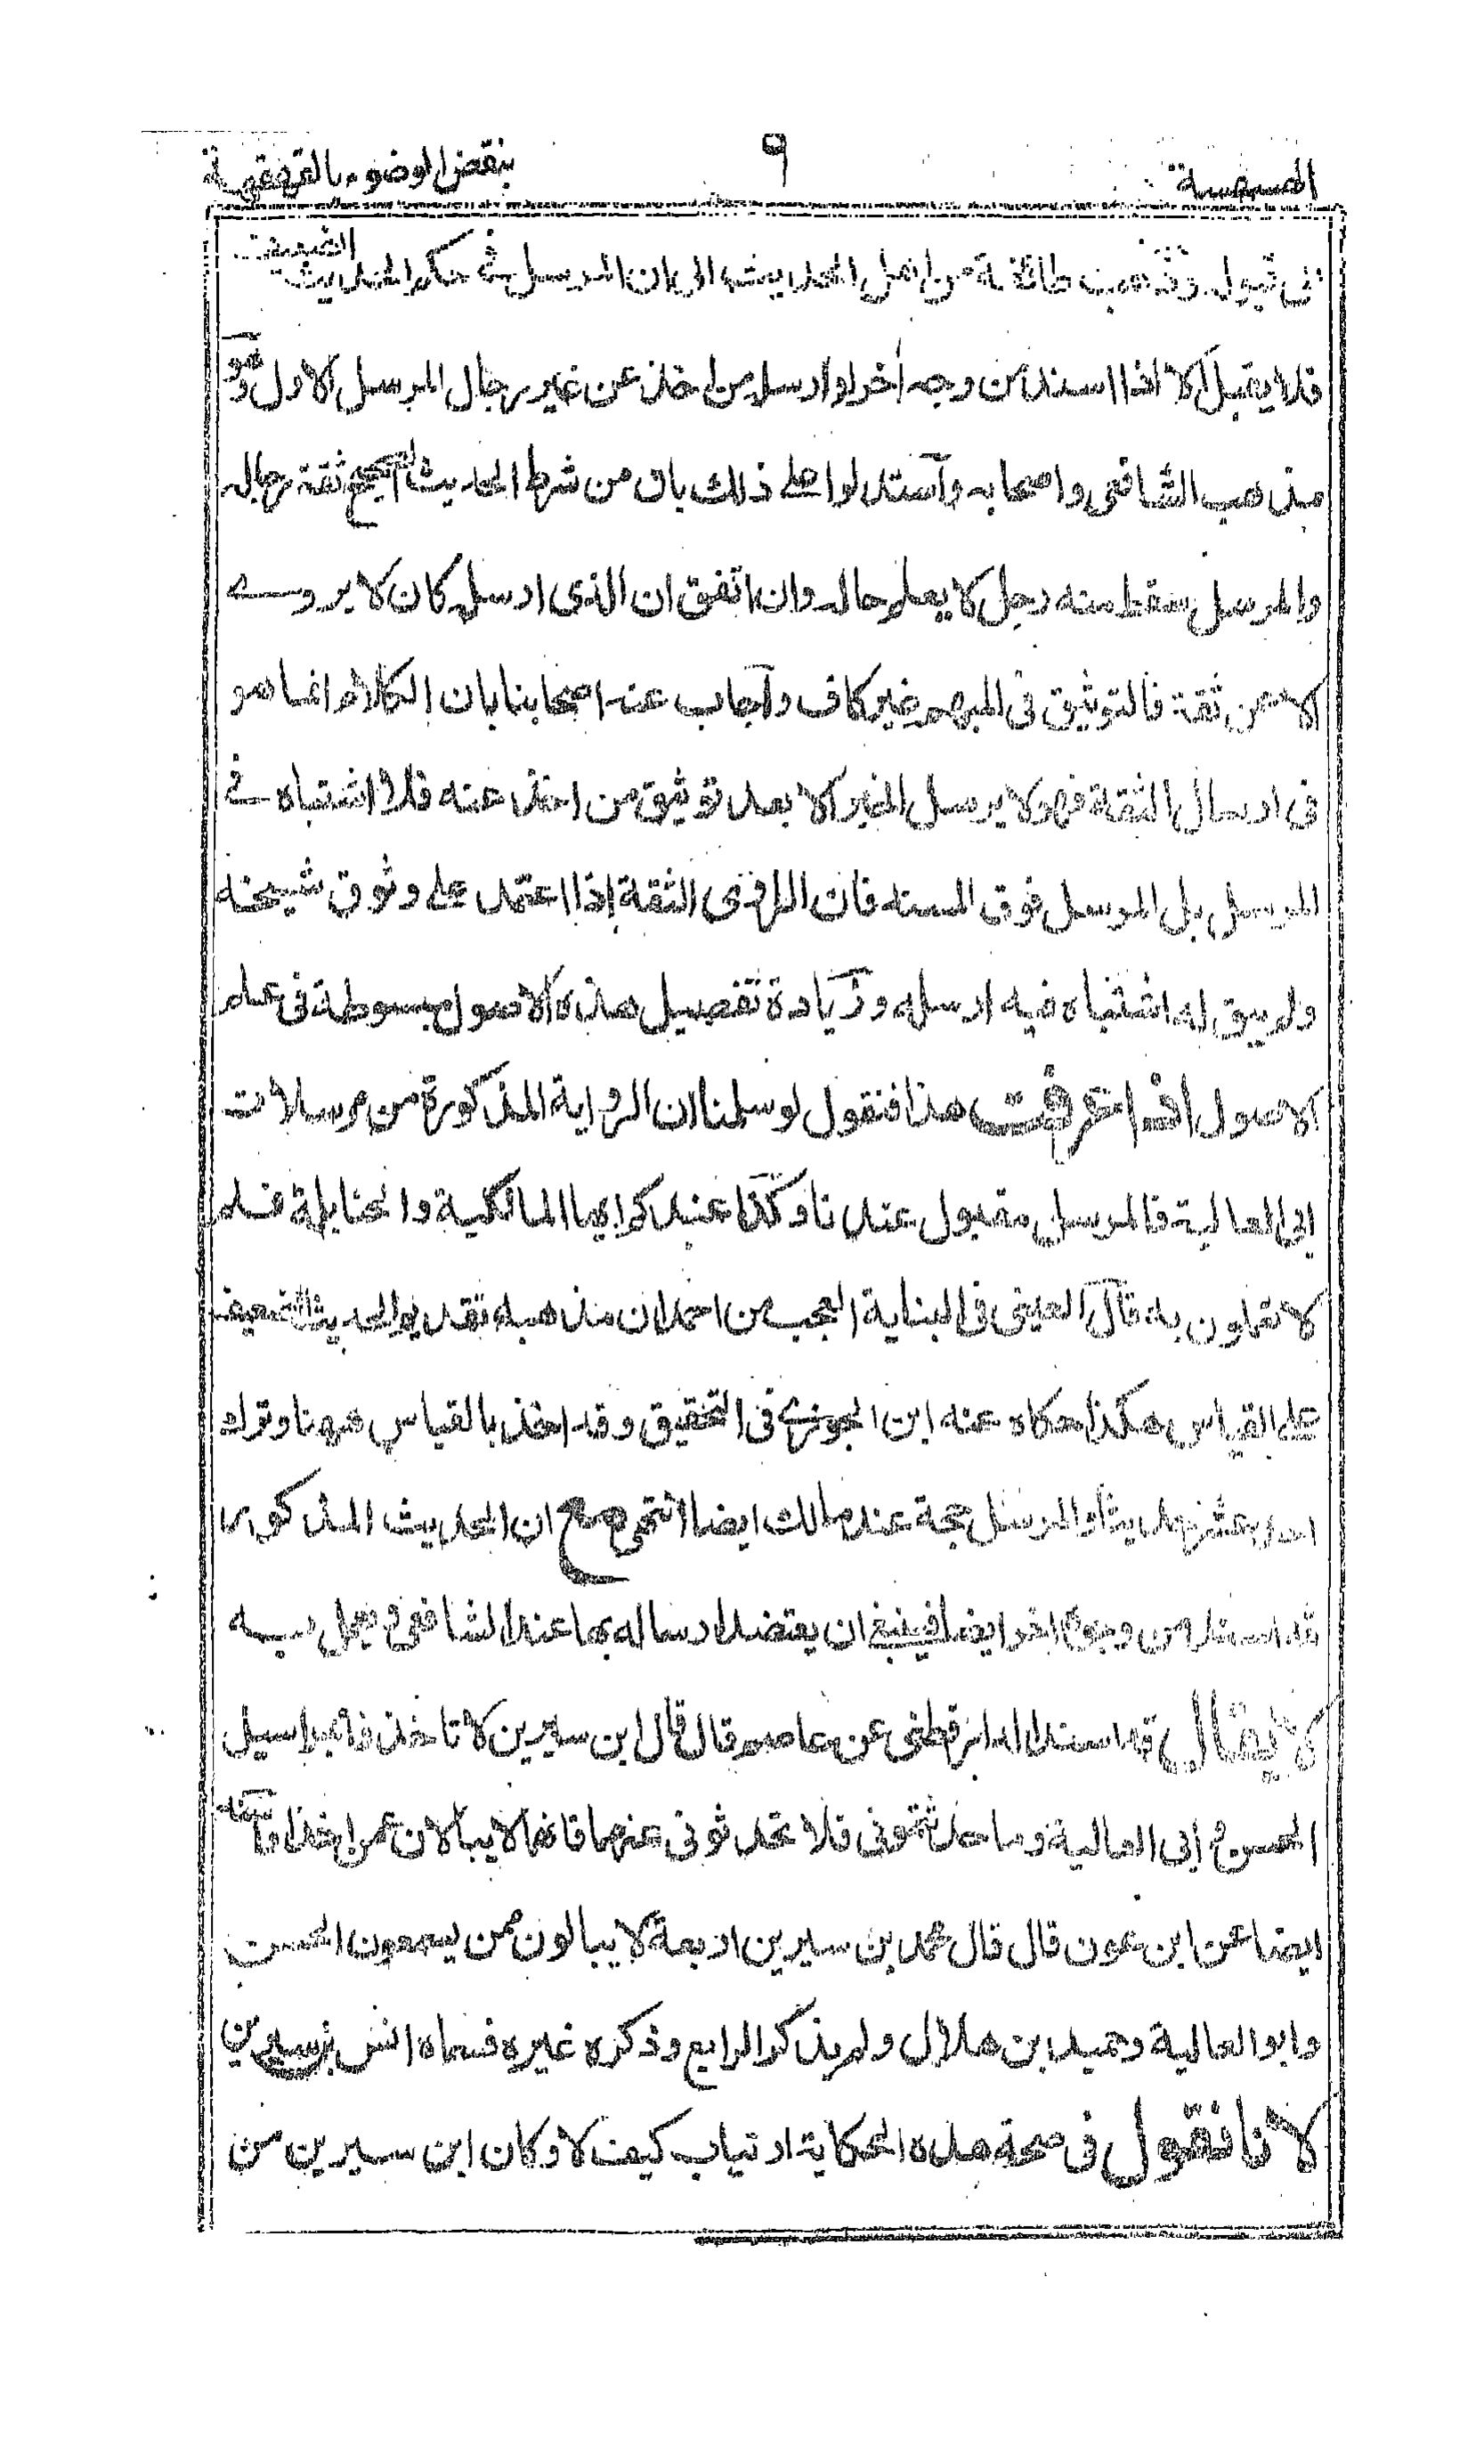 الهسهسة ٩ بنقض الوضوء بالقهقهة
فى قبوله وذهبت طائفة من اهل الحديث الى ان المرسل فى حكم الحديث الضعيف
فلا يقبل الا اذا اسند من وجه اخر او ارسله من اخذ عن غير رجال المرسل الاول وهو
مذهب الشافعى واصحابه وآستدلوا على ذلك بان من شرط الحديث الصحيح ثقة رجاله
والمرسل سقط منه رجل لا يعلم حاله وان اتفق ان الذى ارسله كان لا يروے
الا عن ثقة فالتوثيق فى المبهم غير كاف وآجاب عنه اصحابنا بان الكلام انما هو
فى ارسال الثقة فهو لا يرسل الخبر الا بعد توثيق من اخذ عنه فلا اشتباه فے
المرسل بل المرسل فوق المسند فان الراوى الثقة اذا اعتمد على وثوق شيخه
ولم يبق له اشتباه فيه ارسله وزيادة تفصيل هذه الاصول مبسوطة فى علم
الاصول اذا عرفت هذا فنقول لو سلمنا ان الرواية المذكورة من مرسلات
ابى العالية فالمرسل مقبول عندنا وكذا عند كم ايها المالكية والحنابلة فلم
لا تعملون به قآل العينى فى البناية العجب من احمد ان مذهبه تقديم الحديث الضعيف
على القياس هكذا حكاه عنه ابن الجوزے فى التحقيق وقد اخذ بالقياس ههنا وترك
احد عشر حديثا والمرسل حجة عند مالك ايضا انتهى مع ان الحديث المذكور
قد اسند من وجوه اخر ايضا فينبغے ان يعتضد ارساله بها عند الشافعى ويعمل به
لا يقال قد اسند الدارقطنى عن عاصم قال قال ابن سيرين لا تاخذوا بمراسيل
الحسن وابى العالية وما حدثتمونى فلا تحدثونى عنهما فانهما لا يباليان عمن اخذا وآسند
ايضا عن ابن عون قال قال محمد بن سيرين اربعة لا يبالون ممن يسمعون الحسن
وابو العالية وحميد بن هلال ولم يذكر الرابع وذكره غيره فسماه انس بن سيرين
لانا نقول فى صحة هذه الحكاية ارتياب كيف لا وكان ابن سيرين من